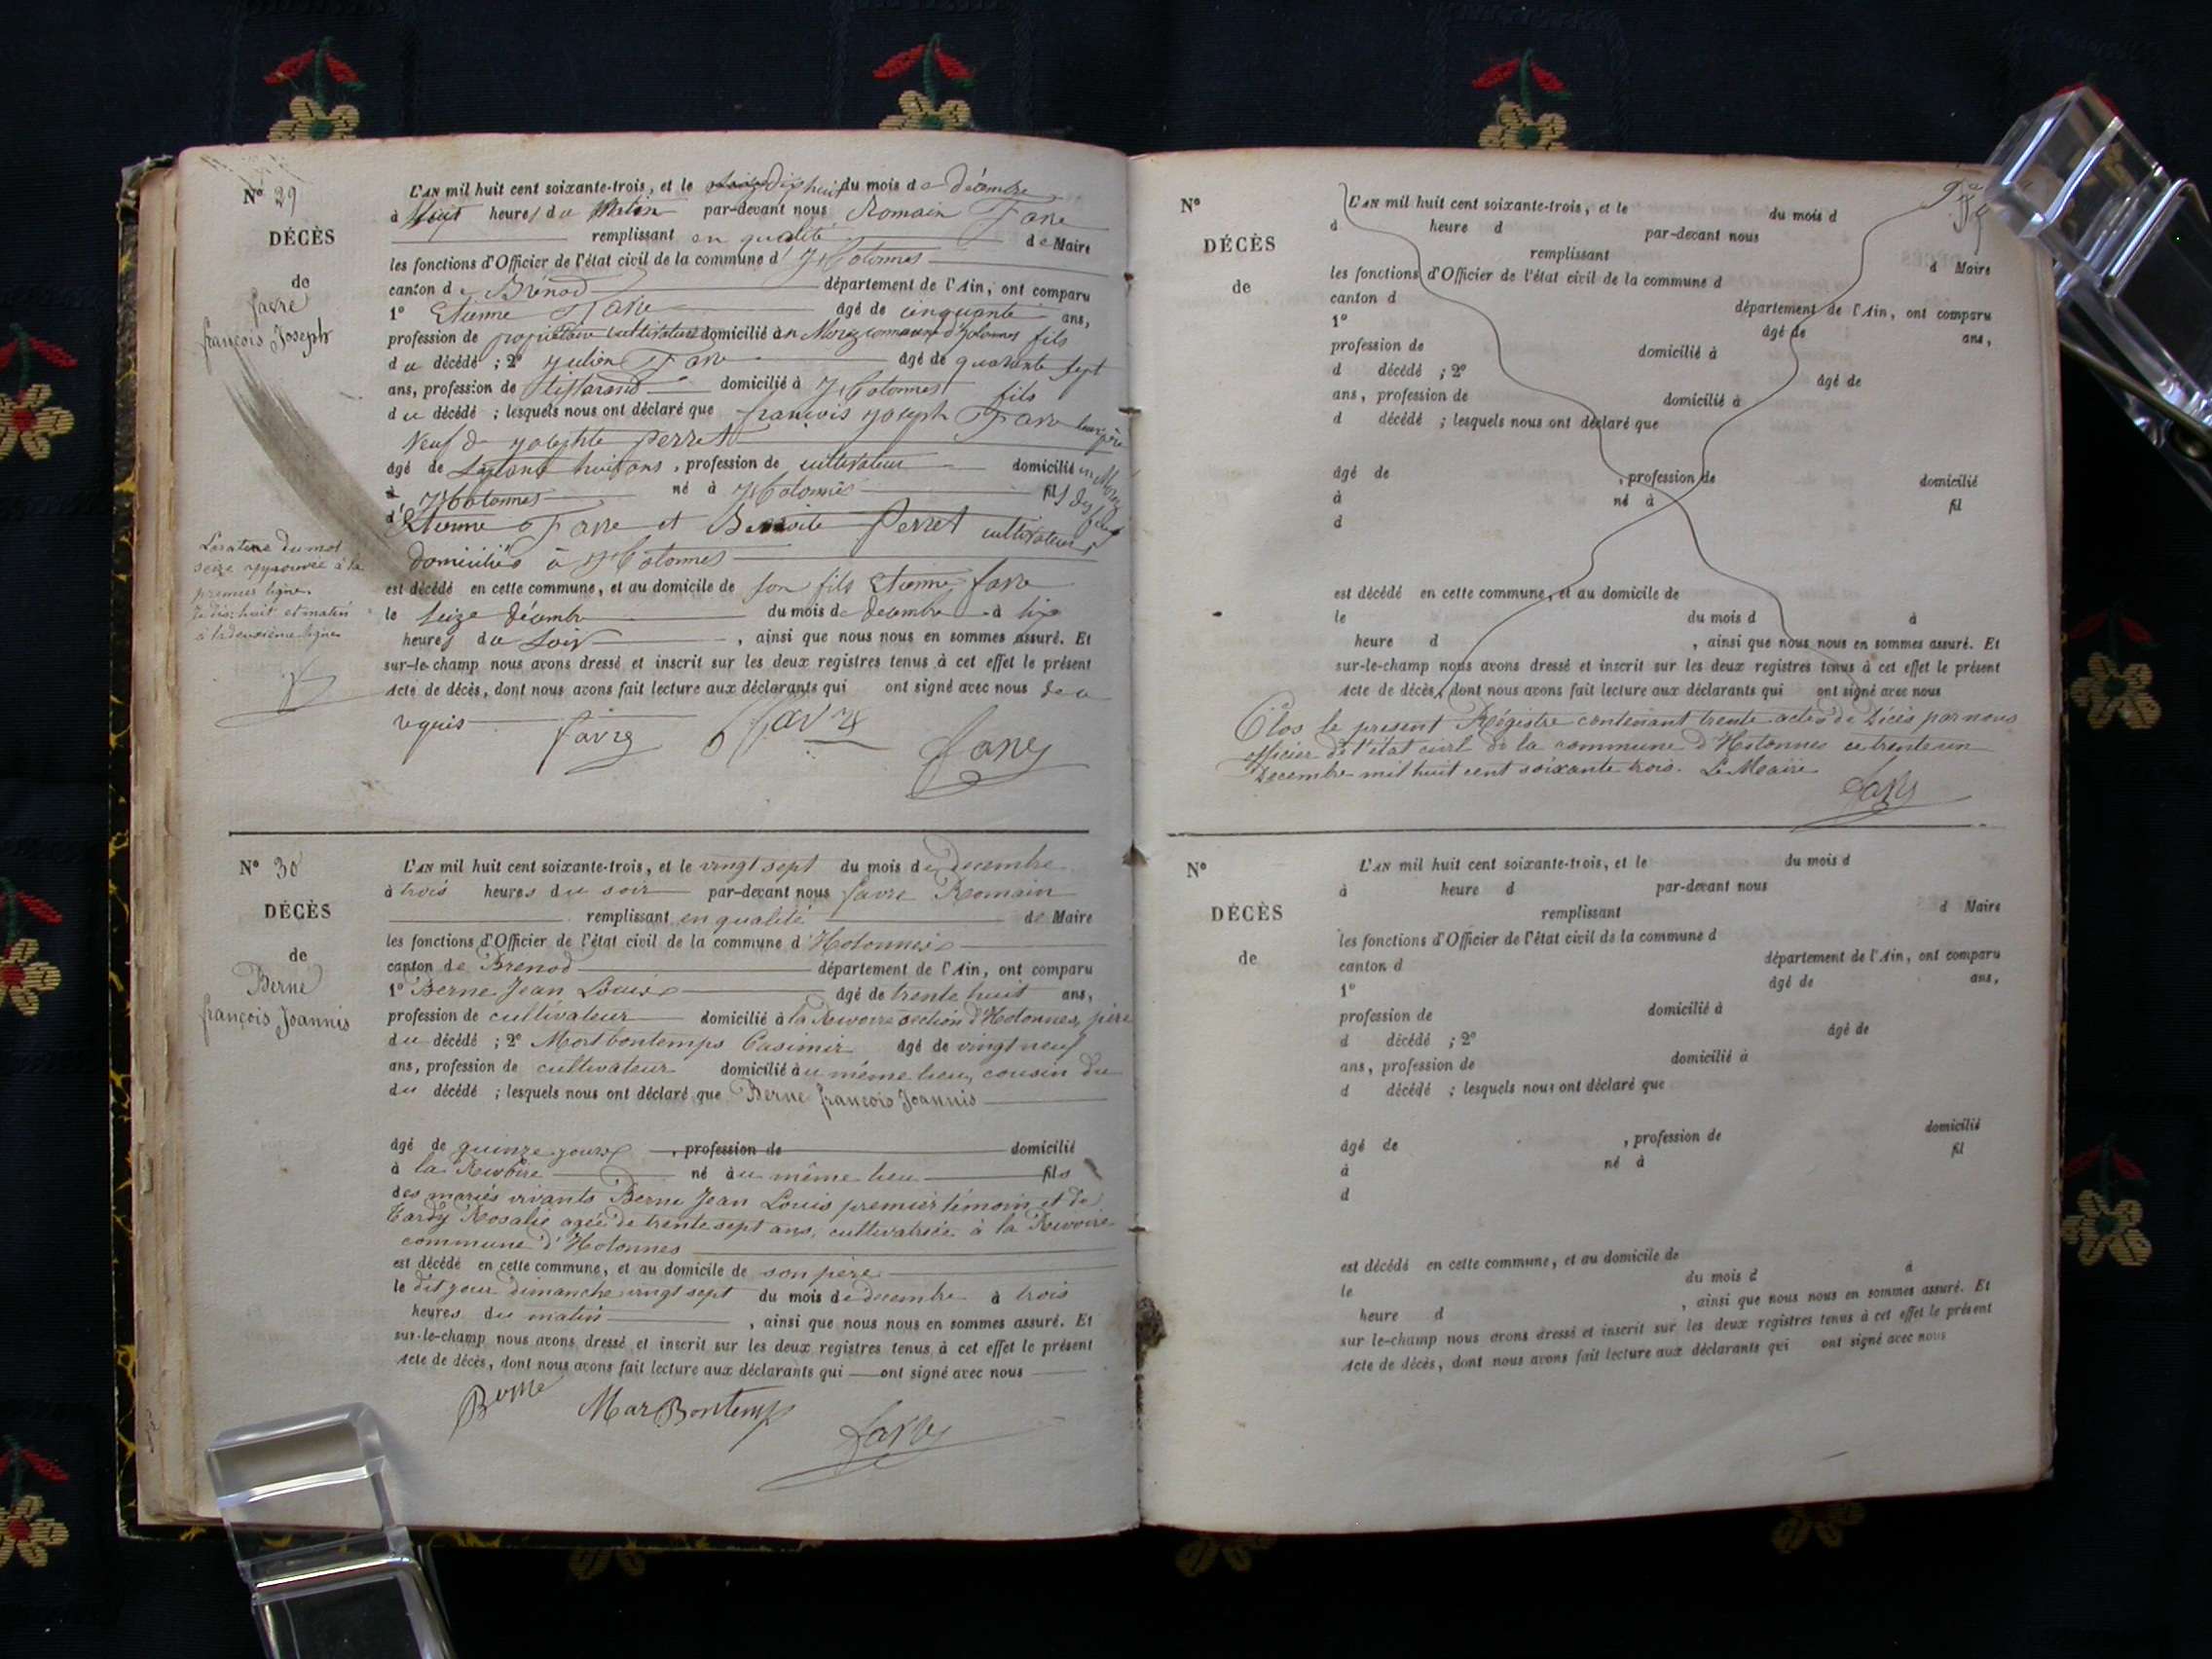 N° 29
DÉCÈS
de
favre
françois Joseph
L'AN mil huit cent soixante-trois, et le dix huit du mois de décembre
à huit heures du Matin par-devant nous Romain Favre
remplissant en qualité de Maire
les fonctions d'Officier de l'état civil de la commune d'Hotonnes
canton de Brénod département de l'Ain, ont comparu
1° Etienne Favre âgé de cinquante ans,
profession de propriétaire cultivateur domicilié à fils
du décédé ; 2° Julien Favre âgé de quarante sept
ans, profession de tisserand domicilié à Hotonnes fils
du décédé ; lesquels nous ont déclaré que françois Joseph Favre leur père
Veuf de Perret
âgé de Septante huit ans, profession de cultivateur domicilié
à Hotonnes né à Hotonnes fils des
d'Etienne Favre et Benoite Perret cultivateurs
domiciliés à Hotonnes
est décédé en cette commune, et au domicile de son fils Etienne favre
le seize décembre du mois de decembre à
heures du Soir, ainsi que nous nous en sommes assuré. Et
sur-le-champ nous avons dressé et inscrit sur les deux registres tenus à cet effet le présent
Acte de décès, dont nous avons fait lecture aux déclarants qui ont signé avec nous de ce
requis favre favre favre
La rature du mot
seize approuvée à la
premier ligne.
le dix-huit et matin
à la deuxième ligne
N° 30
DÉCÈS
de
Berne
françois Joannis
L'AN mil huit cent soixante-trois, et le vingt sept du mois de Decembre
à trois heures du soir par-devant nous favre Romain
remplissant en qualité de Maire
les fonctions d'Officier de l'état civil de la commune d'Hotonnes
canton de Brenod département de l'Ain, ont comparu
1° Berne Jean Louis âgé de trente huit ans,
profession de cultivateur domicilié à la Rivoire section d'Hotonnes, père
du décédé ; 2° Mortbontemps Casimir âgé de vingt neuf
ans, profession de cultivateur domicilié au même lieu, cousin du
du décédé ; lesquels nous ont déclaré que Berne françois Joannis
âgé de quinze jours, profession de domicilié
à la Rivoire né au même lieu fils
des mariés vivants Berne Jean Louis premier témoin et de
Tardy Rosalie agée de trente sept ans, cultivatrice à la Rivoire
commune d'Hotonnes
est décédé en cette commune, et au domicile de son père
le dit jour dimanche vingt sept du mois de decembre à trois
heures du matin, ainsi que nous nous en sommes assuré. Et
sur-le-champ nous avons dressé et inscrit sur les deux registres tenus à cet effet le présent
Acte de décès, dont nous avons fait lecture aux déclarants qui ont signé avec nous
Berne MarBontemps favre
N°
DÉCÈS
de
L'AN mil huit cent soixante-trois, et le du mois d
à heure d par-devant nous
remplissant d Maire
les fonctions d'Officier de l'état civil de la commune d
canton d département de l'Ain, ont comparu
1° âgé de ans,
profession de domicilié à
d décédé ; 2° âgé de
ans, profession de domicilié à
d décédé ; lesquels nous ont déclaré que
âgé de , profession de domicilié
à né à fil
d
est décédé en cette commune, et au domicile de
le du mois d à
heure d , ainsi que nous nous en sommes assuré. Et
sur-le-champ nous avons dressé et inscrit sur les deux registres tenus à cet effet le présent
Acte de décès, dont nous avons fait lecture aux déclarants qui ont signé avec nous
Clos le present Régistre contenant trente actes de décès par nous
officier de l'état civil de la commune d'Hotonnes ce trente un
Decembre mil huit cent soixante trois. Le Maire
favre
N°
DÉCÈS
de
L'AN mil huit cent soixante-trois, et le du mois d
à heure d par-devant nous
remplissant d Maire
les fonctions d'Officier de l'état civil de la commune d
canton d département de l'Ain, ont comparu
1° âgé de ans,
profession de domicilié à
d décédé ; 2° âgé de
ans, profession de domicilié à
d décédé ; lesquels nous ont déclaré que
âgé de , profession de domicilié
à né à fil
d
est décédé en cette commune, et au domicile de
le du mois d à
heure d , ainsi que nous nous en sommes assuré. Et
sur-le-champ nous avons dressé et inscrit sur les deux registres tenus à cet effet le présent
Acte de décès, dont nous avons fait lecture aux déclarants qui ont signé avec nous